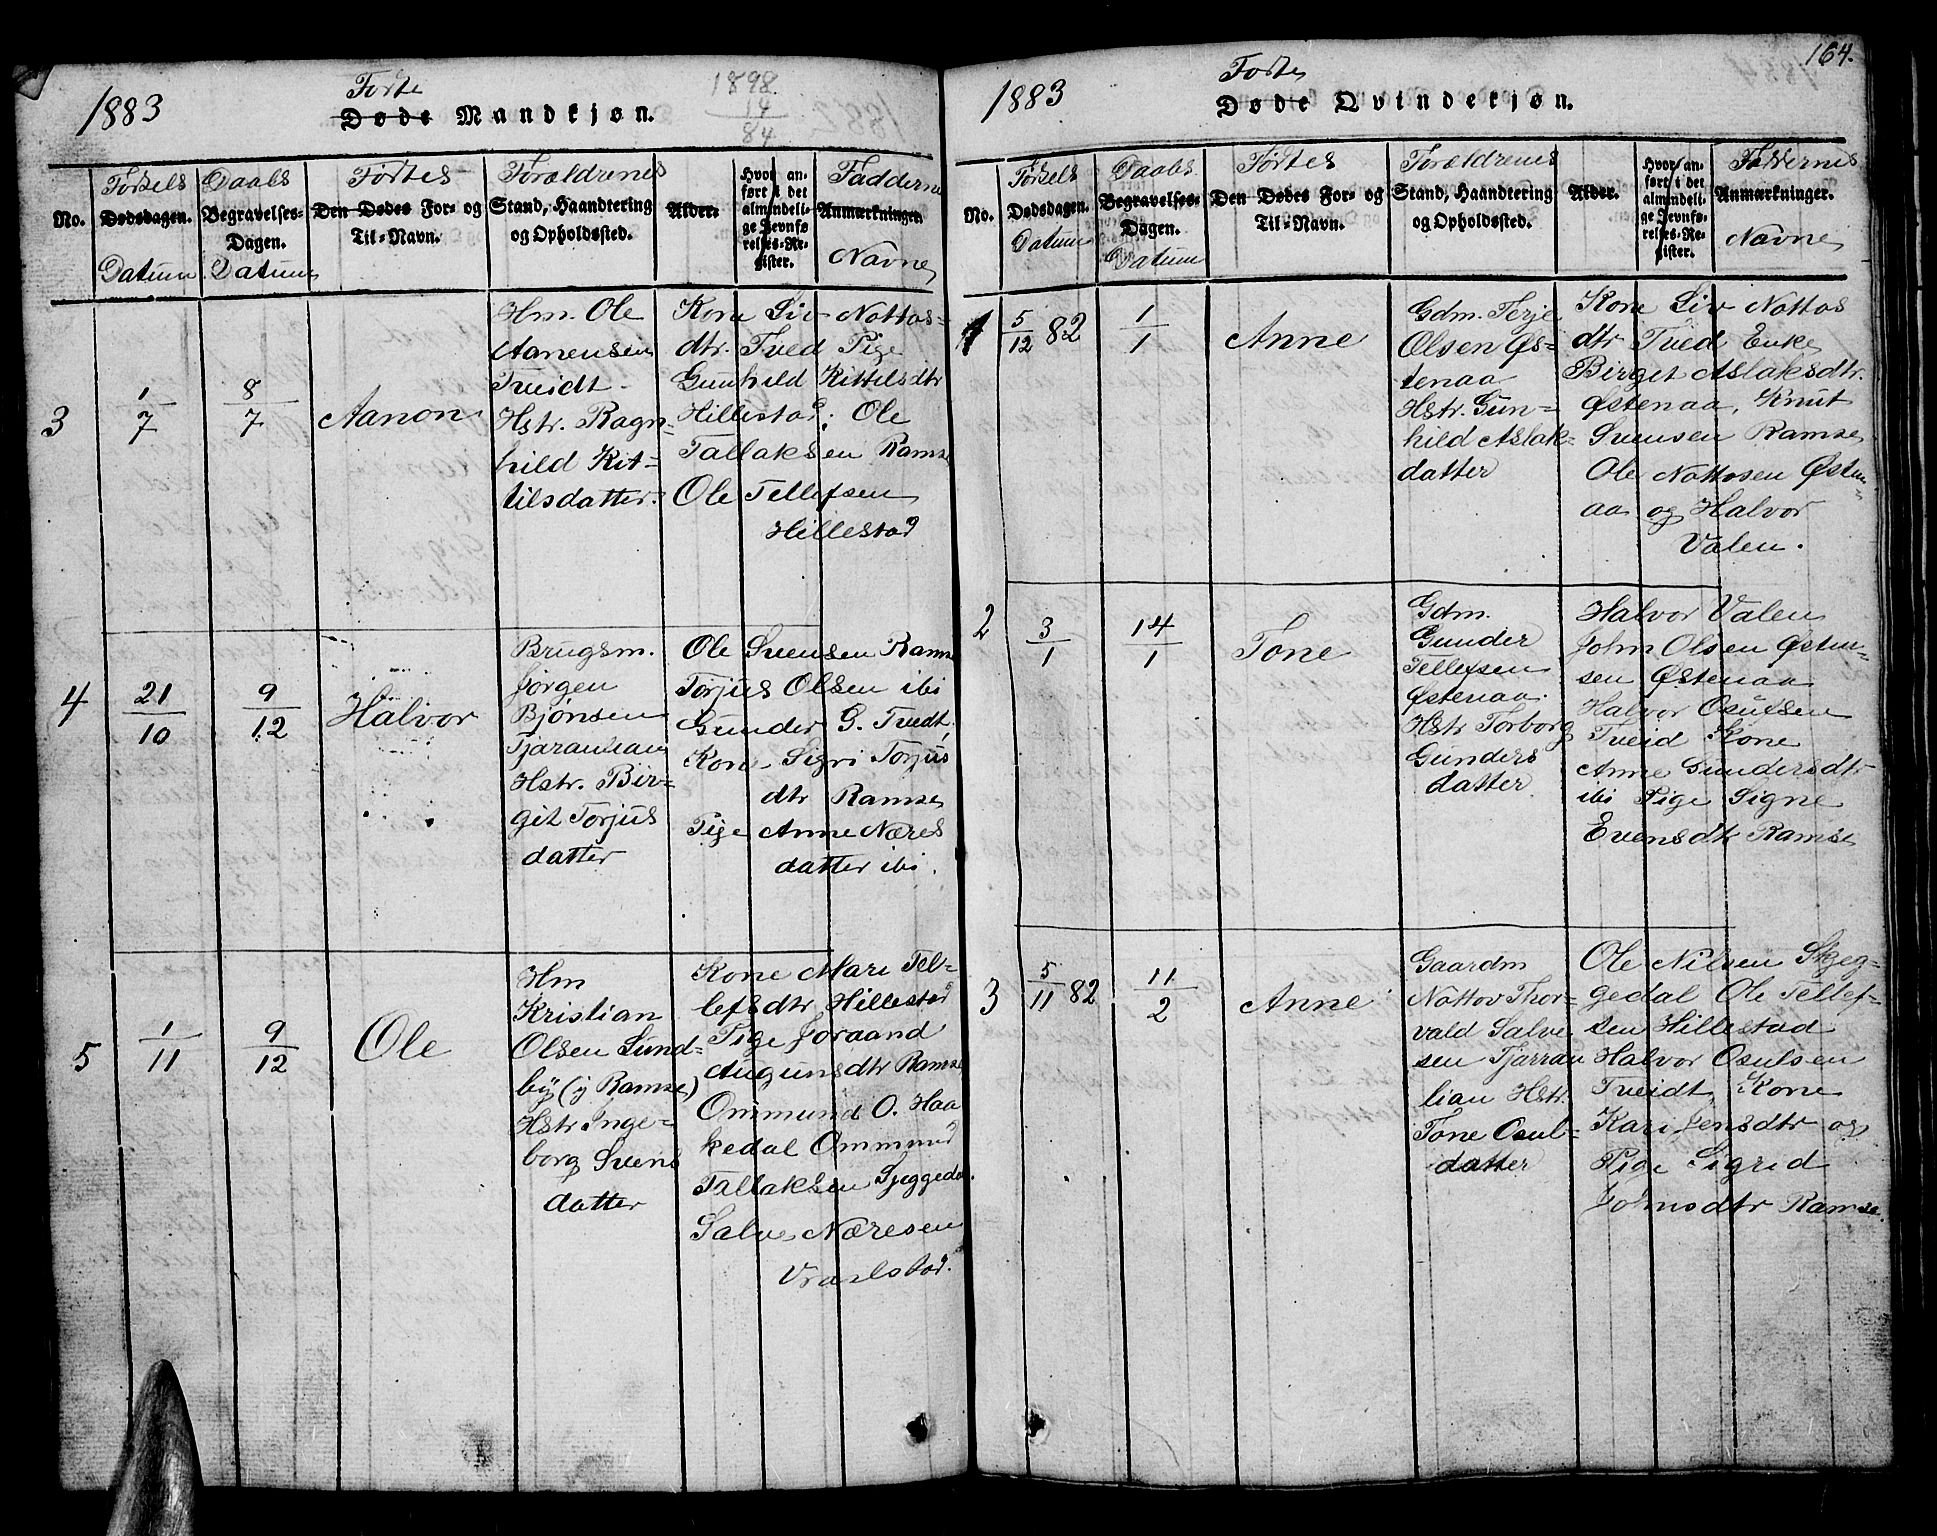 1883
Fødte
Døde Mandkjøn.
1898
14
84
No.
Fødsels
Dødsdagen.
Datum
Daabs
Begravelses-
Dagen.
Datum
Fødtes
Den Dødes For- og
Til-Navn.
Forældrenes
Stand, Haandtering
og Opholdssted.
Alder.
Hvor an-
ført i det
almindeli-
ge Jevnfø-
relses-Re-
gister.
Faddernes
Anmærkninger.
Navne
3
1/7
8/7
Aanon
Hm. Ole
Aanensen
Tveidt
Hstr. Ragn-
hild Kit-
tilsdatter.
Kone Liv Nottos-
dtr. Tved Pige
Gunhild Kittelsdtr
Hillestad; Ole
Tallaksen Ramse
Ole Tellefsen
Hillestad
4
21/10
9/12
Halvor
Brugsm.
Jørgen
Bjønsen
Tjaranlian
Hstr. Bir-
git Torjus
datter
Ole Svensen Ramse
Torjus Olsen ibi
Gunder G. Tvedt,
Kon. Sigri Torjus
dtr Ramse
Pige Anne Næres
datter ibi.
5
1/11
9/12
Ole
Hm
Kristian
Olsen Sund-
by (y Ramse)
Hstr Inge-
borg Svens
datter
Kone Mari Tel-
lefsdtr Hillestad
Pige Joraand
Augunsdtr Ramse
Ommund O. Haa
kedal Ommund
Tallaksen Sjeggedal.
Salve Næresen
Vraalstad.
164.
1883
Fødte
Døde Qvindekjøn.
No.
Fødsels
Dødsdagen.
Datum
Daabs
Begravelses-
Dagen.
Datum
Fødtes
Den Dødes For- og
Til-Navn.
Forældrenes
Stand, Haandtering
og Opholdssted.
Alder.
Hvor an-
ført i det
almindeli-
ge Jevnfø-
relses-Re-
gister.
Faddernes
Anmærkninger.
Navne
1
5/12 82
1/1
Anne
Gdm. Terje
Olsen Øs-
tenaa
Hstr. Gun-
hild Aslak-
datter
Kone Liv Nottos
dtr Tved Enke
Birget Aslaksdtr.
Østenaa, Knut
Svensen Ramse
Ole Nottosen Østen-
aa og Halvor
Valen.
2
3/1
14/1
Tone
Gdm.
Gunder
Tellefsen
Østenaa.
Hstr Torborg
Gunders
datter
Halvor Valen
John Olsen Østen-
sen Østenaa
Halvor Osulsen
Tveid Kone
Anne Gundersdtr
ibi Pige Signe
Evensdtr Ramse
3
5/11 82
11/2
Anne
Gaardm
Nottov Thor-
vald Salve
sen Tjarran
lian Hstr.
Tone Osul-
datter
Ole Nilsen Skjeg-
gedal Ole Tellef-
sen Hillestad
Halvor Osulsen
Tveidt, Kone
Kari Jensdtr og
Pige Sigrid
Johnsdtr Ramse.